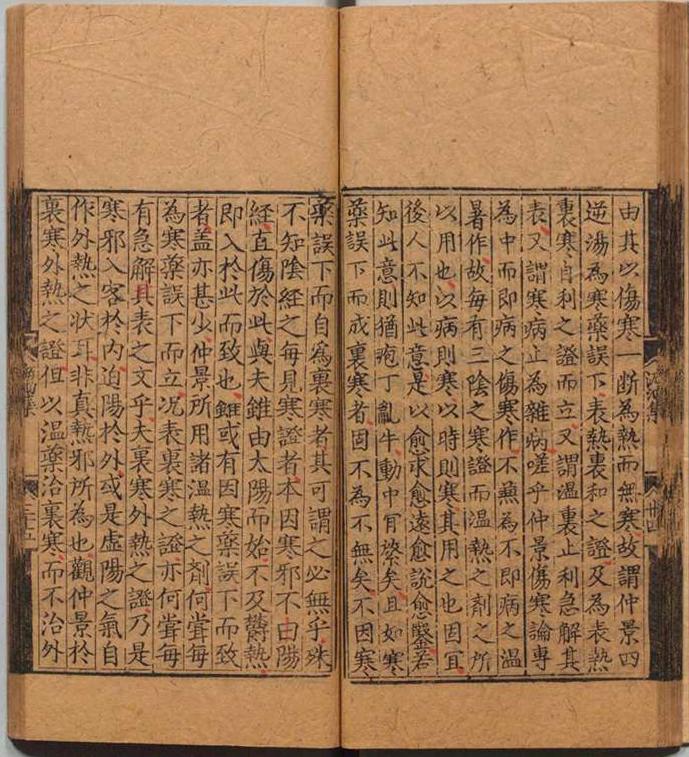 由其以傷寒一断為熱而無寒故謂仲景四
逆湯為寒藥誤下表熱裏和之證及為表熱
裏寒自利之證而立又謂溫裏止利急解其
表又謂寒病止為雜病嗟乎仲景傷寒論專
為中而即病之傷寒作不蕉為不即病之溫
暑作故每有三陰之寒證而溫熱之劑之所
以用也以病則寒以時則寒其用之也因冝
後人不知此意是以愈求愈遠愈說愈鑿若
知此意則猶庖丁亂牛動中肎綮矣且如寒
藥誤下而成裏寒者因不為不無矣不因寒
藥誤下而自爲裏寒者其可謂之必無乎殊
不知陰経之每見寒證者本因寒邪不由陽
経直傷於此與夫雖由太陽而始不及欝熱
即入於此而致也雖或有因寒藥誤下而致
者盖亦甚少仲景所用諸溫熱之剤何甞每
為寒藥誤下而立况表裏寒之證亦何甞每
有急解其表之文乎夫裏寒外熱之證乃是
寒邪入客於内迫陽於外或是虛陽之氣自
作外熱之状耳非真熱邪所為也觀仲景於
裏寒外熱之證但以溫藥治裏寒而不治外
泝洄集
廿四